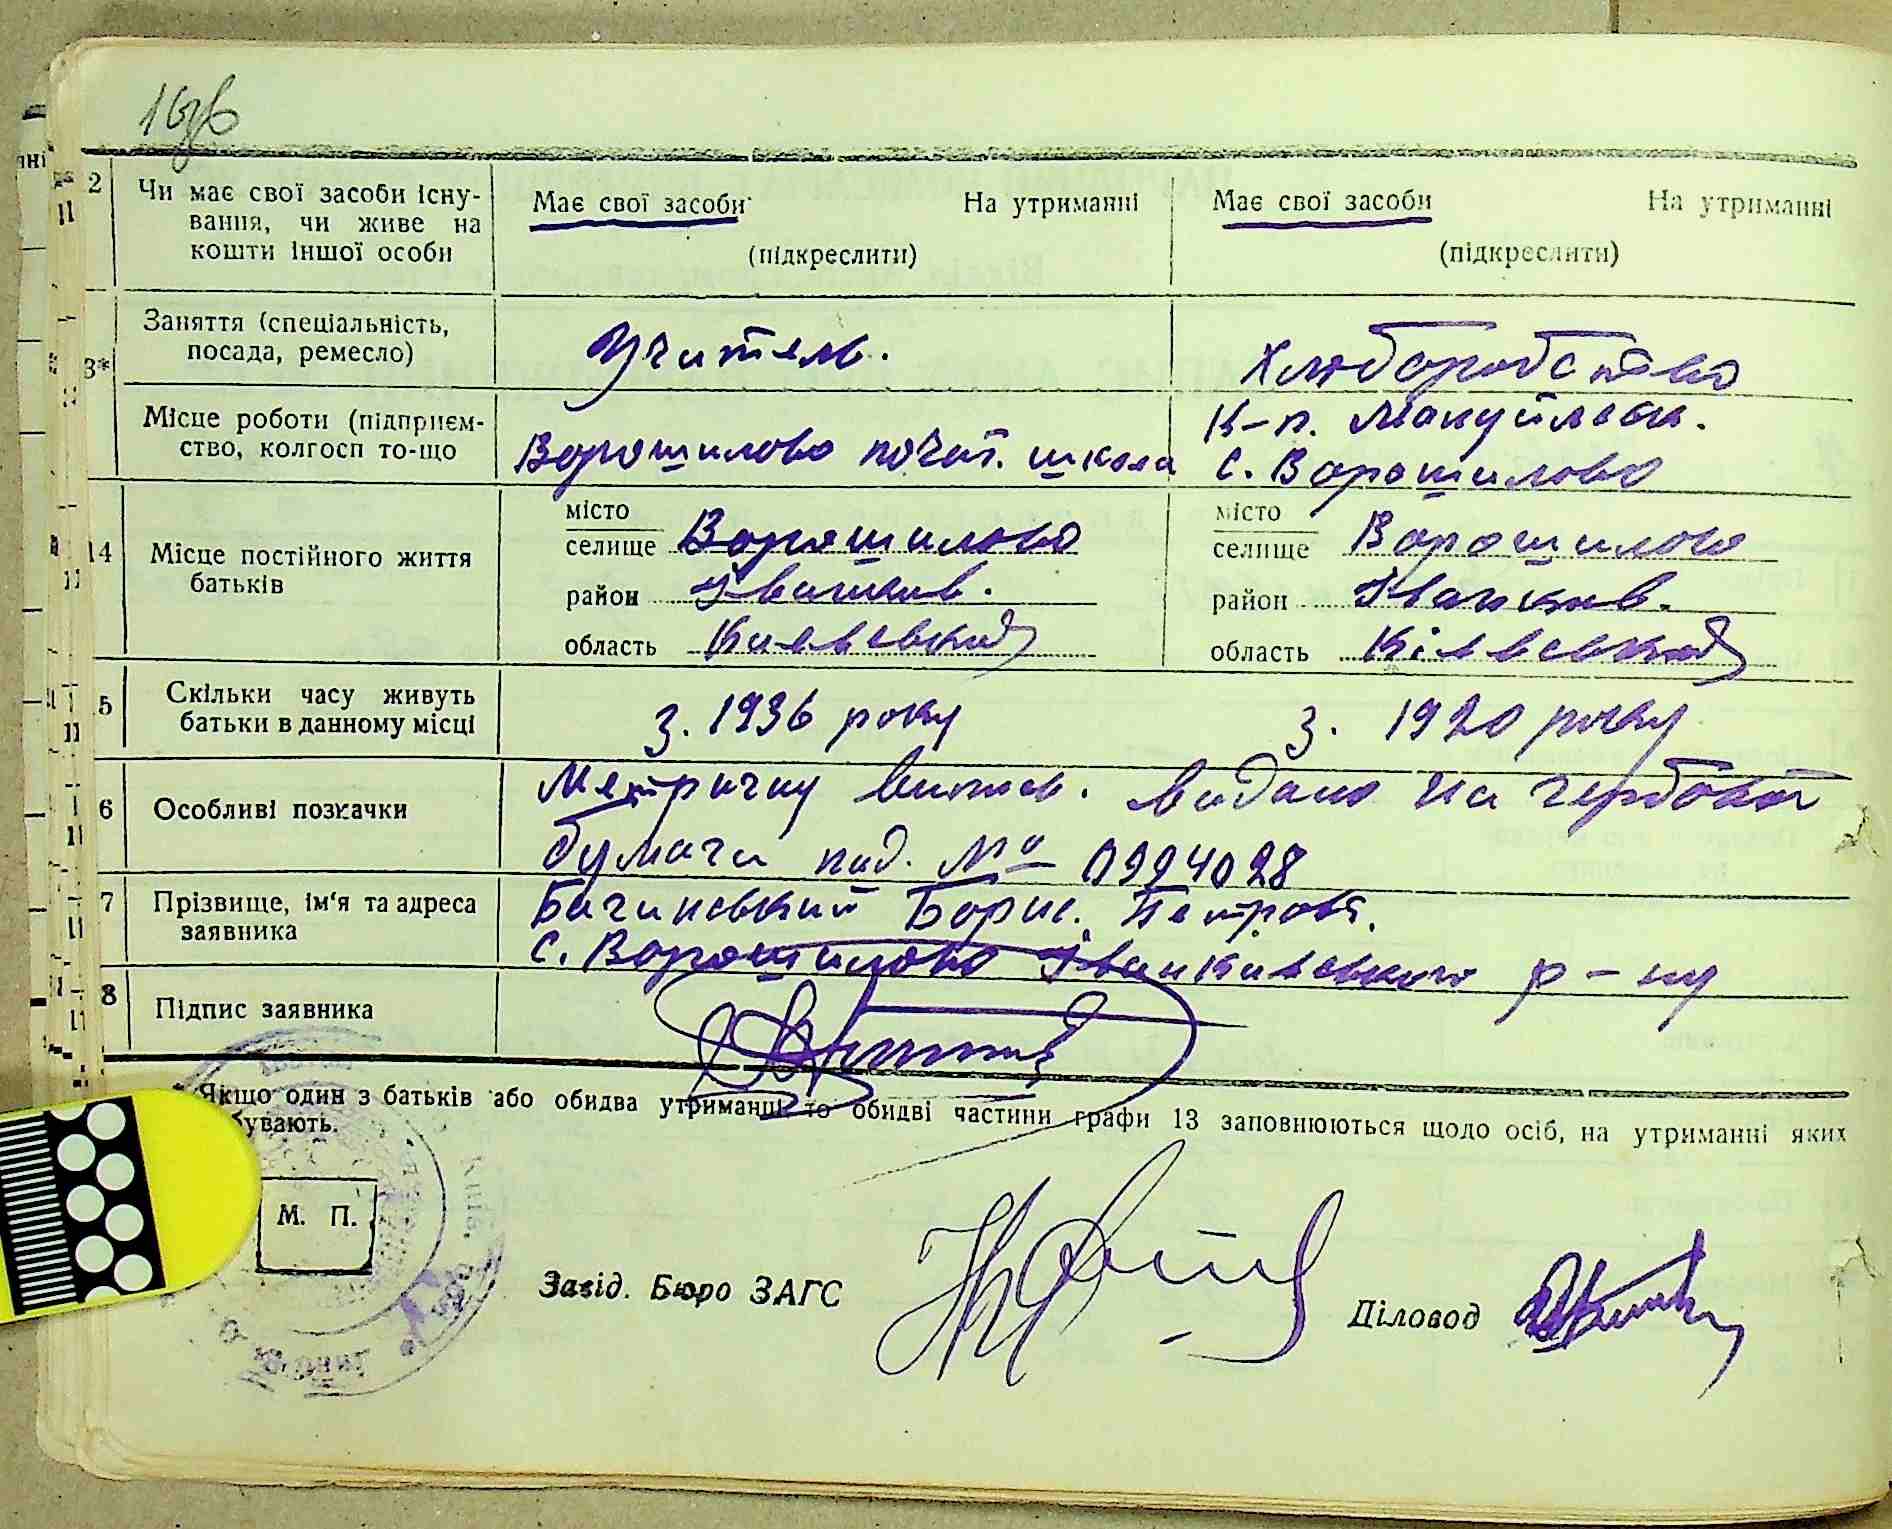 2 Чи має свої засоби існу-
вання, чи живе на
кошти іншої особи
Має свої засоби На утриманні
(підкреслити)
Має свої засоби На утриманні
(підкреслити)
3*
Заняття (спеціальність,
посада, ремесло)
Учитель.
Хлюборобство
Місце роботи (підприєм-
ство, колгосп то-що
Ворошилово почат. школа
К-п. Мануїльск.
с. Ворошилово
14 Місце постійного життя
батьків
місто
селище Ворошилово
район Іванков.
область Киевської
місто
селище Ворошилово
район Іванков.
область Кієвської
5 Скільки часу живуть
батьки в данному місці
з. 1936 року
з. 1920 року
6 Особливі позначки
Метричну випис. видано на гербовой
бумаги под. № 0994028
7 Прізвище, ім'я та адреса
заявника
Бачинський Борис. Петров.
с. Ворошилово Іванківського р-ну
8 Підпис заявника
* Якщо один з батьків або обидва утриманці то обидві частини графи 13 заповнюються щодо осіб, на утриманні яких
бувають.
М. П.
Завід. Бюро ЗАГС
Діловод